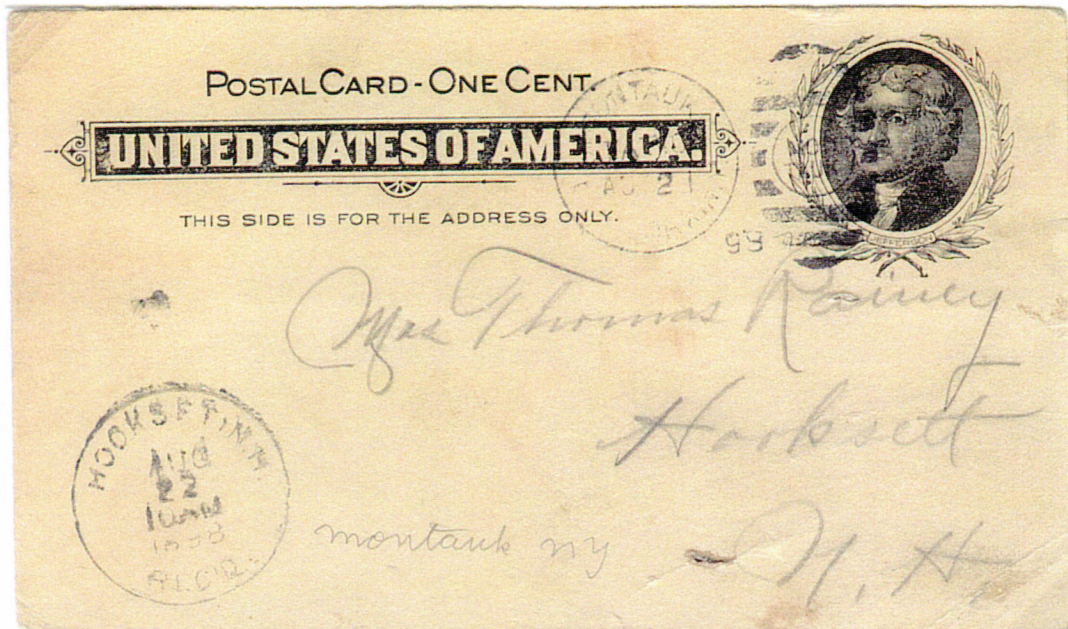 POSTAL CARD - ONE CENT.
UNITED STATES OF AMERICA.
THIS SIDE IS FOR THE ADDRESS ONLY.
MONTAUK
AUG 21
98
JEFFERSON
Mrs Thomas Rainey
Hooksett
N. H.
HOOKSETT, N.H.
AUG
22
10 AM
1898
REC'D.
montauk ny